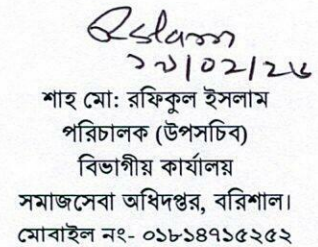 শাহ মো: রফিকুল ইসলাম
পরিচালক (উপসচিব)
বিভাগীয় কার্যালয়
সমাজসেবা অধিদপ্তর, বরিশাল।
মোবাইল নং- ০১৮১৪৭১৫২৫২